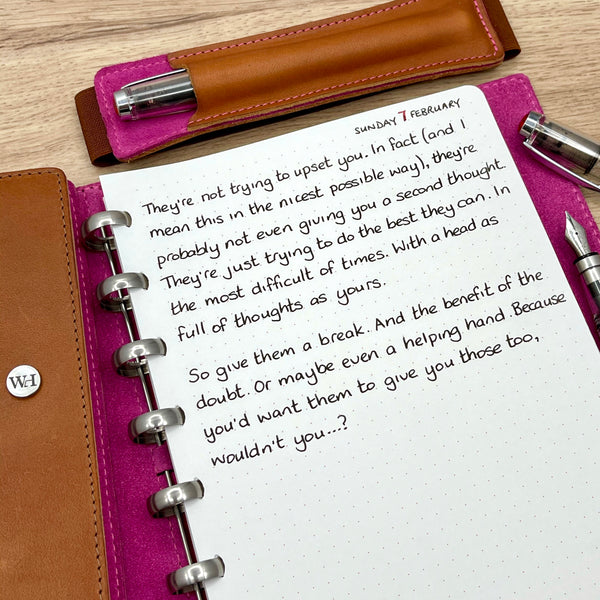 SUNDAY 7 FEBRUARY
They're not trying to upset you. In fact (and I
mean this in the nicest possible way), they're
probably not even giving you a second thought.
They're just trying to do the best they can. In
the most difficult of times. With a head as
full of thoughts as yours.
So give them a break. And the benefit of the
doubt. Or maybe even a helping hand. Because
you'd want them to give you those too,
wouldn't you...?
WH